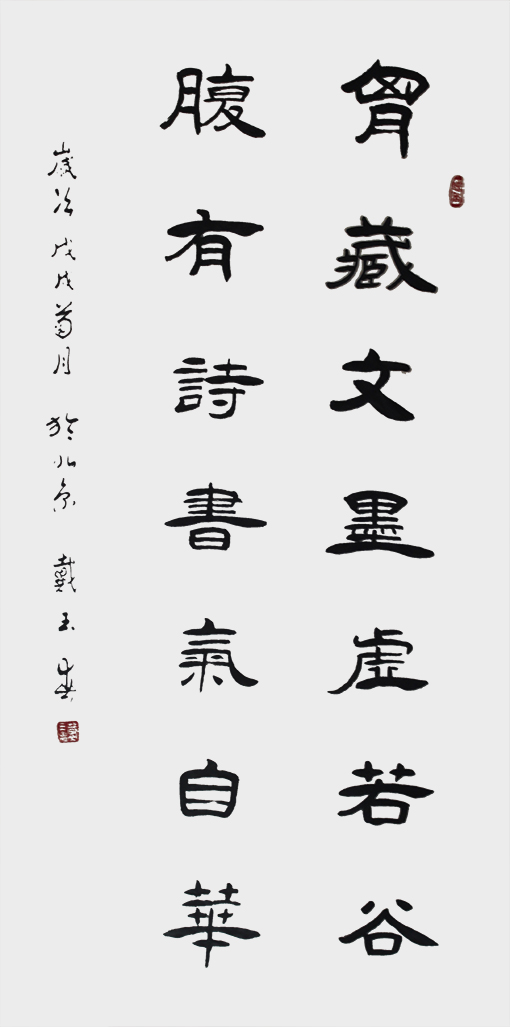 胷藏文墨虛若谷
腹有詩書氣自華
歲次戊戌菊月於北京戴玉